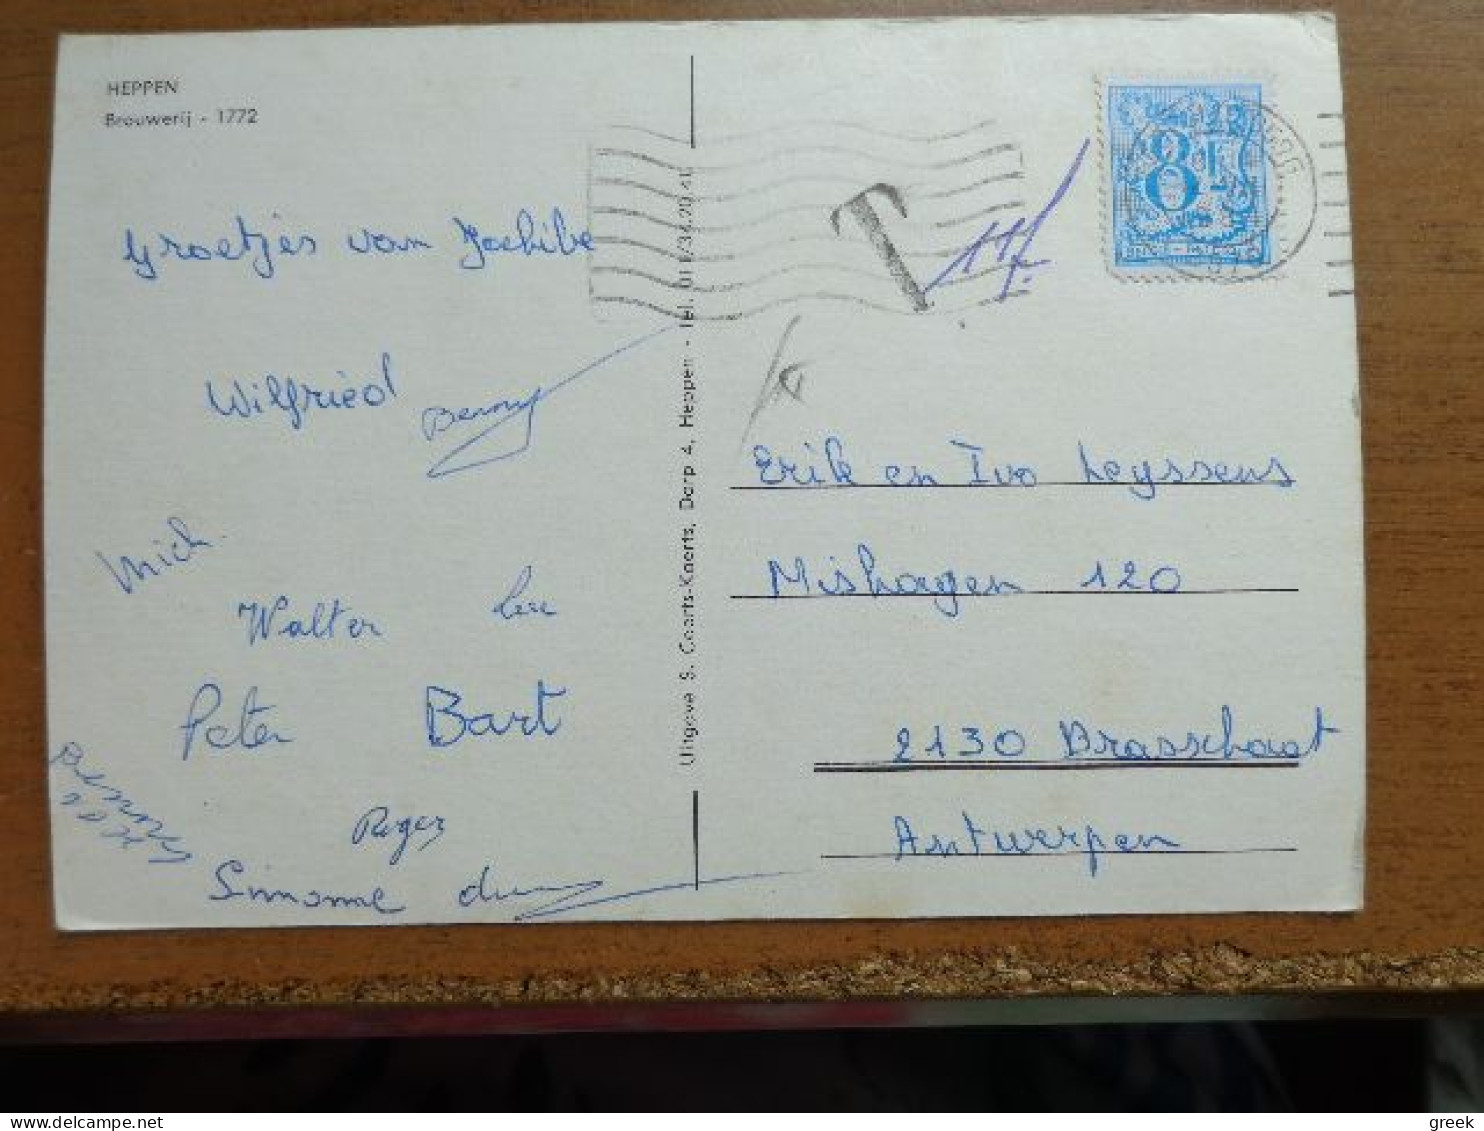 HEPPEN
Brouwerij - 1772
Groetjes van
Wilfried
Benny
Mich.
Walter
Peter Bart
Roger
Simonne
Uitgave S. Geerts-Kaerts, Dorp 4, Heppen - Tel. 011/34.20.40
T
8F
Erik en Ivo Leyssens
Mishagen 120
2130 Brasschaat
Antwerpen
greek